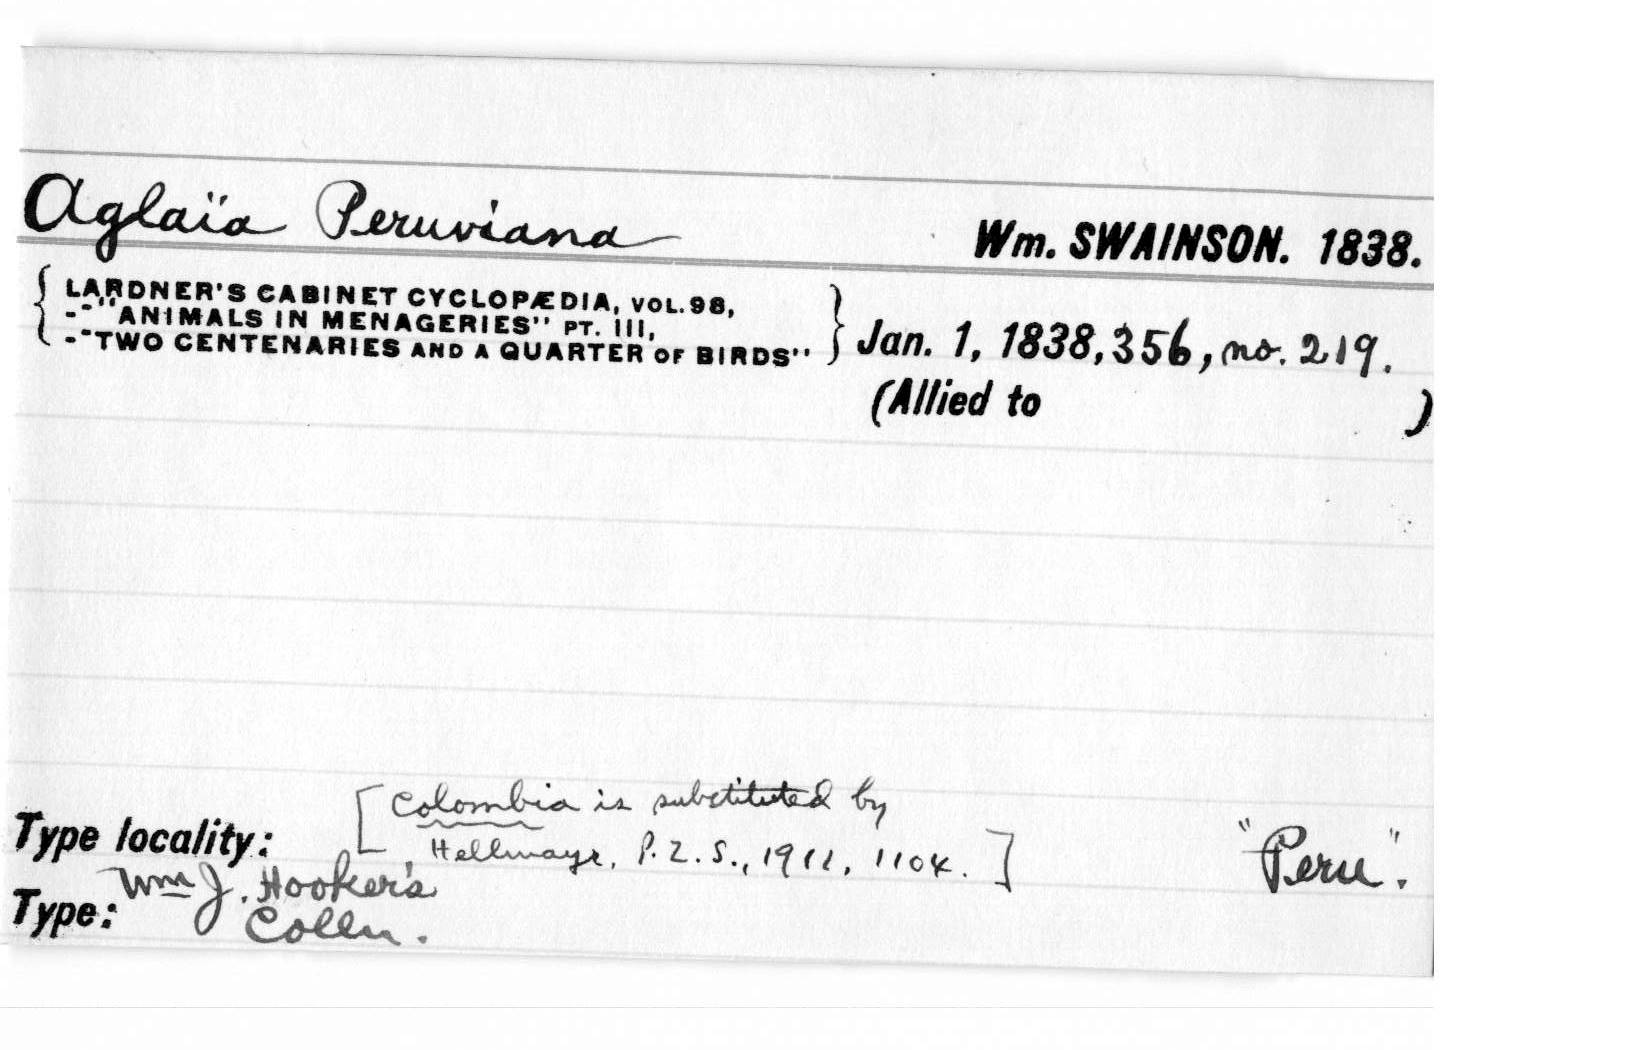 Aglaïa Peruviana
Wm. SWAINSON. 1838.
LARDNER'S CABINET CYCLOPÆDIA, VOL. 98,
--"ANIMALS IN MENAGERIES" PT. III,
--"TWO CENTENARIES AND A QUARTER OF BIRDS"
Jan. 1, 1838, 356, no. 219.
(Allied to )
[Colombia is substituted by
Type locality: Hellmayr, P.Z.S., 1911, 1104.] "Peru".
Wm J. Hooker's
Type: Colln.